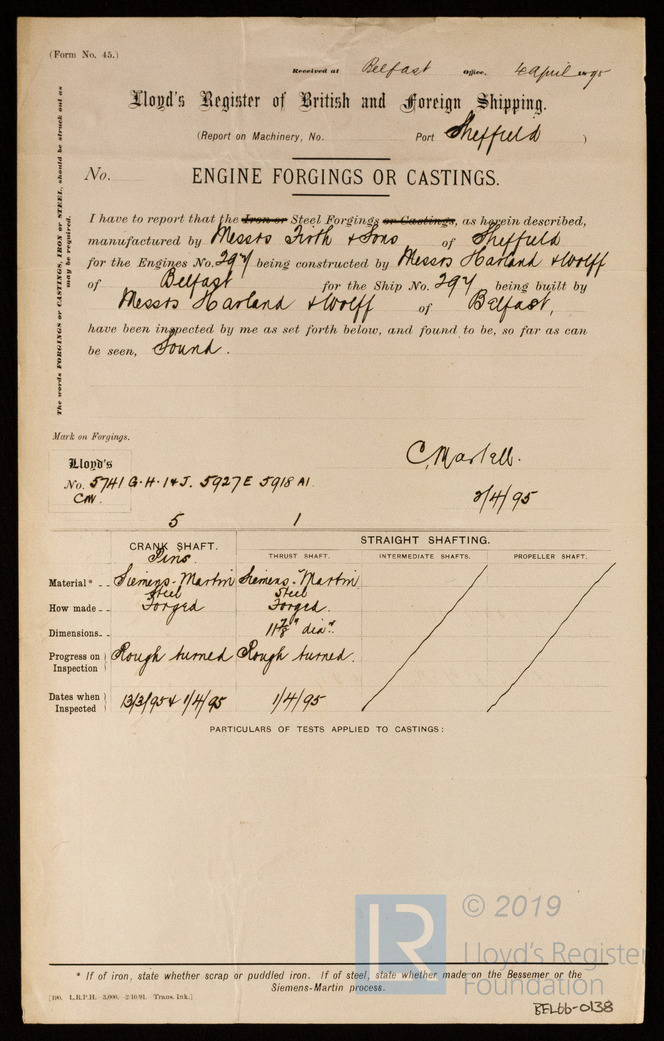 (Form No. 45.)
Received at Belfast Office, 4 April 1895
Lloyd's Register of British and Foreign Shipping.
(Report on Machinery, No. Port Sheffield )
No. ENGINE FORGINGS OR CASTINGS.
The words FORGINGS or CASTINGS, IRON or STEEL, should be struck out as
may be required.
I have to report that the Iron or Steel Forgings or Castings, as herein described,
manufactured by Messrs Firth & Sons of Sheffield
for the Engines No. 297 being constructed by Messrs Harland & Wolff
of Belfast for the Ship No. 297 being built by
Messrs Harland & Wolff of Belfast,
have been inspected by me as set forth below, and found to be, so far as can
be seen, Sound.
Mark on Forgings.
Lloyd's
No. 5741 G. H. I & J. 5927 E 5918 A1
CM.
C. Martell.
2/4/95
5 1
CRANK SHAFT. STRAIGHT SHAFTING.
Pins. THRUST SHAFT. INTERMEDIATE SHAFTS. PROPELLER SHAFT.
Material* Siemens-Martin Siemens-Martin
Steel Steel
How made Forged Forged.
Dimensions 11 7/8" diar.
Progress on Inspection Rough turned Rough turned.
Dates when Inspected 13/3/95 & 1/4/95 1/4/95
PARTICULARS OF TESTS APPLIED TO CASTINGS:
* If of iron, state whether scrap or puddled iron. If of steel, state whether made on the Bessemer or the
Siemens-Martin process.
[190. L.R.P.H. 3,000. 2/10/91. Trans. Ink.]
LR © 2019
Lloyd's Register
Foundation
BEL66-0138